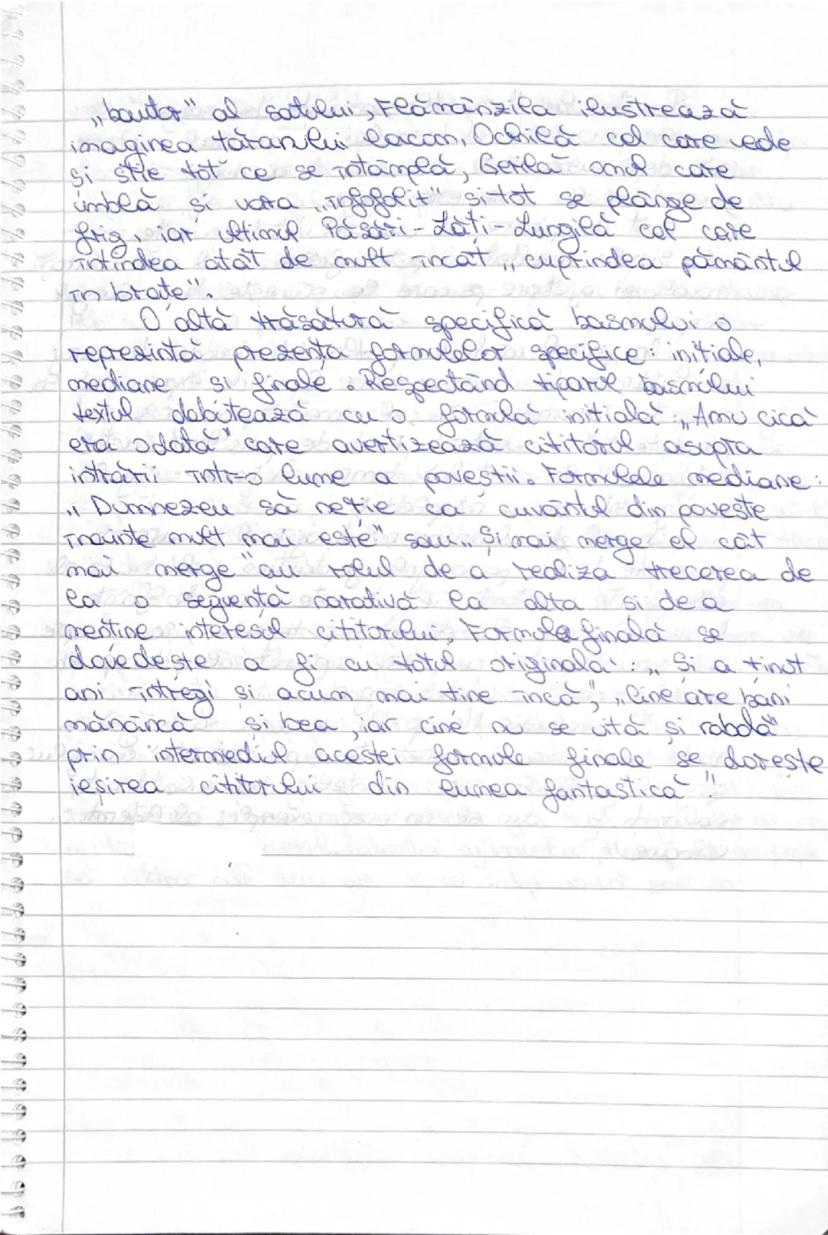 „bautor" al satului, Flămânzila ilustrează
imaginea țăranului lacom, Ochilă cel care vede
și știe tot ce se întâmplă, Gerilă omul care
umblă și vara „înfofolit" și tot se plânge de
frig, iar ultimul Păsări-Lăți-Lungilă cel care
întindea atât de mult încât „cuprindea pământul
în brațe".
O altă trăsătură specifică basmului o
reprezintă prezența formulelor specifice: inițiale,
mediane și finale. Respectând tiparul basmului
textul debutează cu o formulă inițială „Amu cică
era odată" care avertizează cititorul asupra
intrării într-o lume a poveștii. Formulele mediane:
„Dumnezeu să nețîe ca cuvântul din poveste
înainte mult mai este" sau „Și mai merge el cât
mai merge" au rolul de a realiza trecerea de
la o segvență narativă la alta și de a
menține interesul cititorului. Formula finală se
dovedește a fi cu totul originală: „Și a ținut
ani întregi și acum mai ține încă", „Cine are bani
mănâncă și bea, iar cine nu se uită și rabdă"
prin intermediul acestei formule finale se dorește
ieșirea cititorului din lumea fantastică".